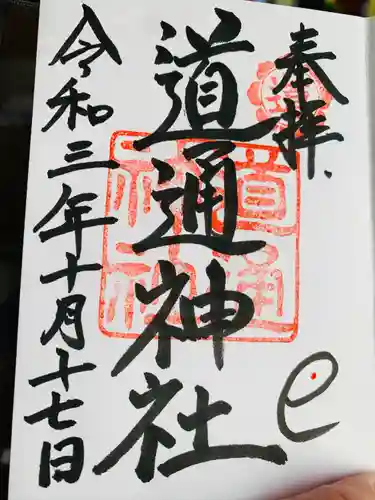 奉拝
道通神社
令和三年十月十七日
道通
神社